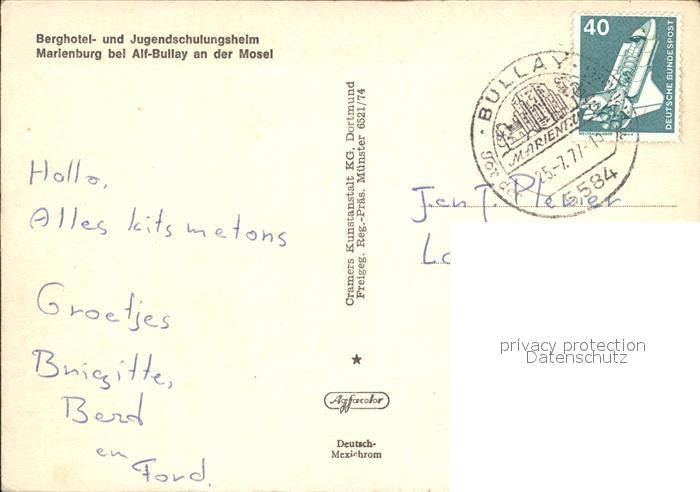 Berghotel- und Jugendschulungsheim
Marienburg bei Alf-Bullay an der Mosel
Hallo,
Alles kits met ons
Groetjes
Brigitte,
Berd
en
Ford.
Cramers Kunstanstalt KG, Dortmund
Freigeg. Reg.-Präs. Münster 6521/74
Agfacolor
Deutsch-
Mexichrom
40
DEUTSCHE BUNDESPOST
BULLAY
MARIENBURG
25.-7.77-15
5584
Jan J.
privacy protection
Datenschutz